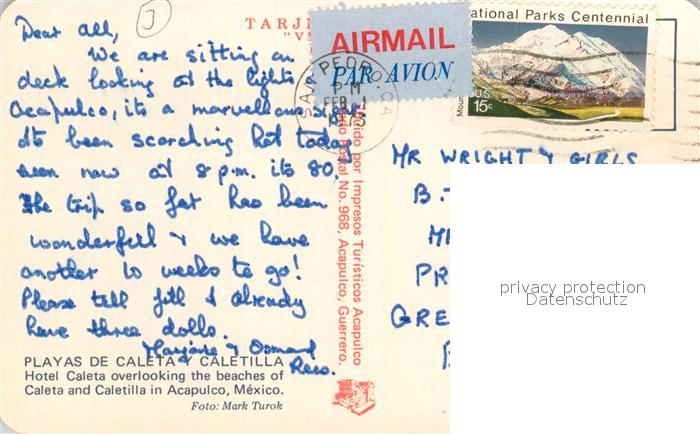 J
TARJ
"V
Dear all,
We are sitting on
deck looking at the lights o
Acapulco, its a marvellous sight
Its been scorching hot today
even now at 8 p.m. its 80,
The trip so far has been
wonderfull & we have
another 10 weeks to go!
Please tell Jill I already
have three dolls.
Marjorie & Osmand
Rees.
PLAYAS DE CALETA Y CALETILLA
Hotel Caleta overlooking the beaches of
Caleta and Caletilla in Acapulco, México.
Foto: Mark Turok
por Impresos Turísticos Acapulco
Postal No. 968, Acapulco, Guerrero.
AIRMAIL
PAR AVION
SAN PEDRO, CA
PM
FEB
ational Parks Centennial
U.S.
15c
MR WRIGHT & GIRLS
B.
M
PR
GRE
B
privacy protection
Datenschutz